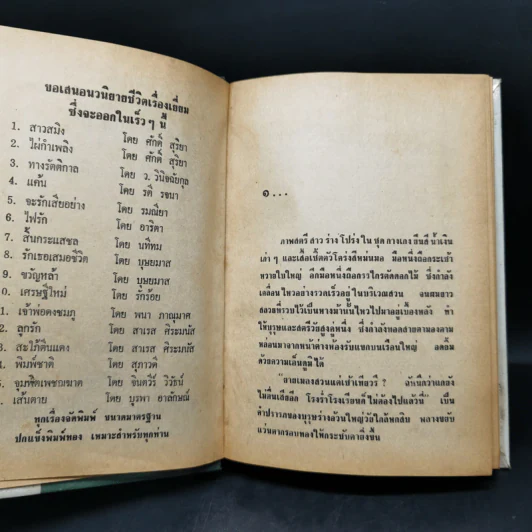 ขอเสนอนวนิยายชีวิตเรื่องเยี่ยม
ซึ่งจะออกในเร็วๆ นี้
1. สาวสมิง โดย ศักดิ์ สุริยา
2. ไผ่กำเพลิง โดย ศักดิ์ สุริยา
3. ทางรัตติกาล โดย ว. วินิจฉัยกุล
4. แค้น โดย รตี รจนา
5. จะรักเสียอย่าง โดย รมณียา
6. ไฟรัก โดย อาริตา
7. สิ้นกระแสชล โดย นทีทม
8. รักเธอเสมอชีวิต โดย บุษยมาส
9. ขวัญหล้า โดย บุษยมาส
0. เศรษฐีใหม่ โดย รักร้อย
1. เจ้าพ่อดงชมภู โดย พนา ภาณุมาศ
2. ลูกรัก โดย สาเรส ศิระมนัส
3. สะใภ้ดินแดง โดย สาเรส ศิระมนัส
4. พิมพ์ชาติ โดย สุภาวดี
5. จุมพิตเพชฌฆาต โดย จินตวีร์ วิวัธน์
6. เส้นตาย โดย บุรพา อาลักษณ์
ทุกเรื่องจัดพิมพ์ ขนาดมาตรฐาน
ปกแข็งพิมพ์ทอง เหมาะสำหรับทุกท่าน
๑...
ภาพสตรี สาว ร่าง โปร่ง ใน ชุด กางเกง ยีนส์ น้ำเงิน
เก่า ๆ และเสื้อเชิ้ตตัวโคร่งสีหม่นมอ มือหนึ่งถือกระเช้า
หวายใบใหญ่ อีกมือหนึ่งถือกรรไกรตัดดอกไม้ ซึ่งกำลัง
เคลื่อนไหวอย่างรวดเร็วอยู่ในบริเวณสวน จนผมยาว
สลวยที่รวบไว้เป็นหางม้านั้นไหวไปมาอยู่เบื้องหลัง ทำ
ให้บุรุษและสตรีวัยสูงคู่หนึ่ง ซึ่งกำลังทอดสายตามองลง
มาจากหน้าต่างห้องรับแขกบนเรือนใหญ่ อดยิ้ม
ด้วยความเอ็นดูมิได้
“ยายเมลงสวนแต่เช้าเทียวรึ ? ฉันนึกว่าแกลง
ไม่ตื่นเสียอีก โรงร่ำโรงเรียนก็ไม่ต้องไปแล้วนี่” เป็น
คำปรารภของบุรุษร่างอ้วนใหญ่วัยใกล้หกสิบ พลางขยับ
แว่นตากรอบทองให้กระชับตายิ่งขึ้น